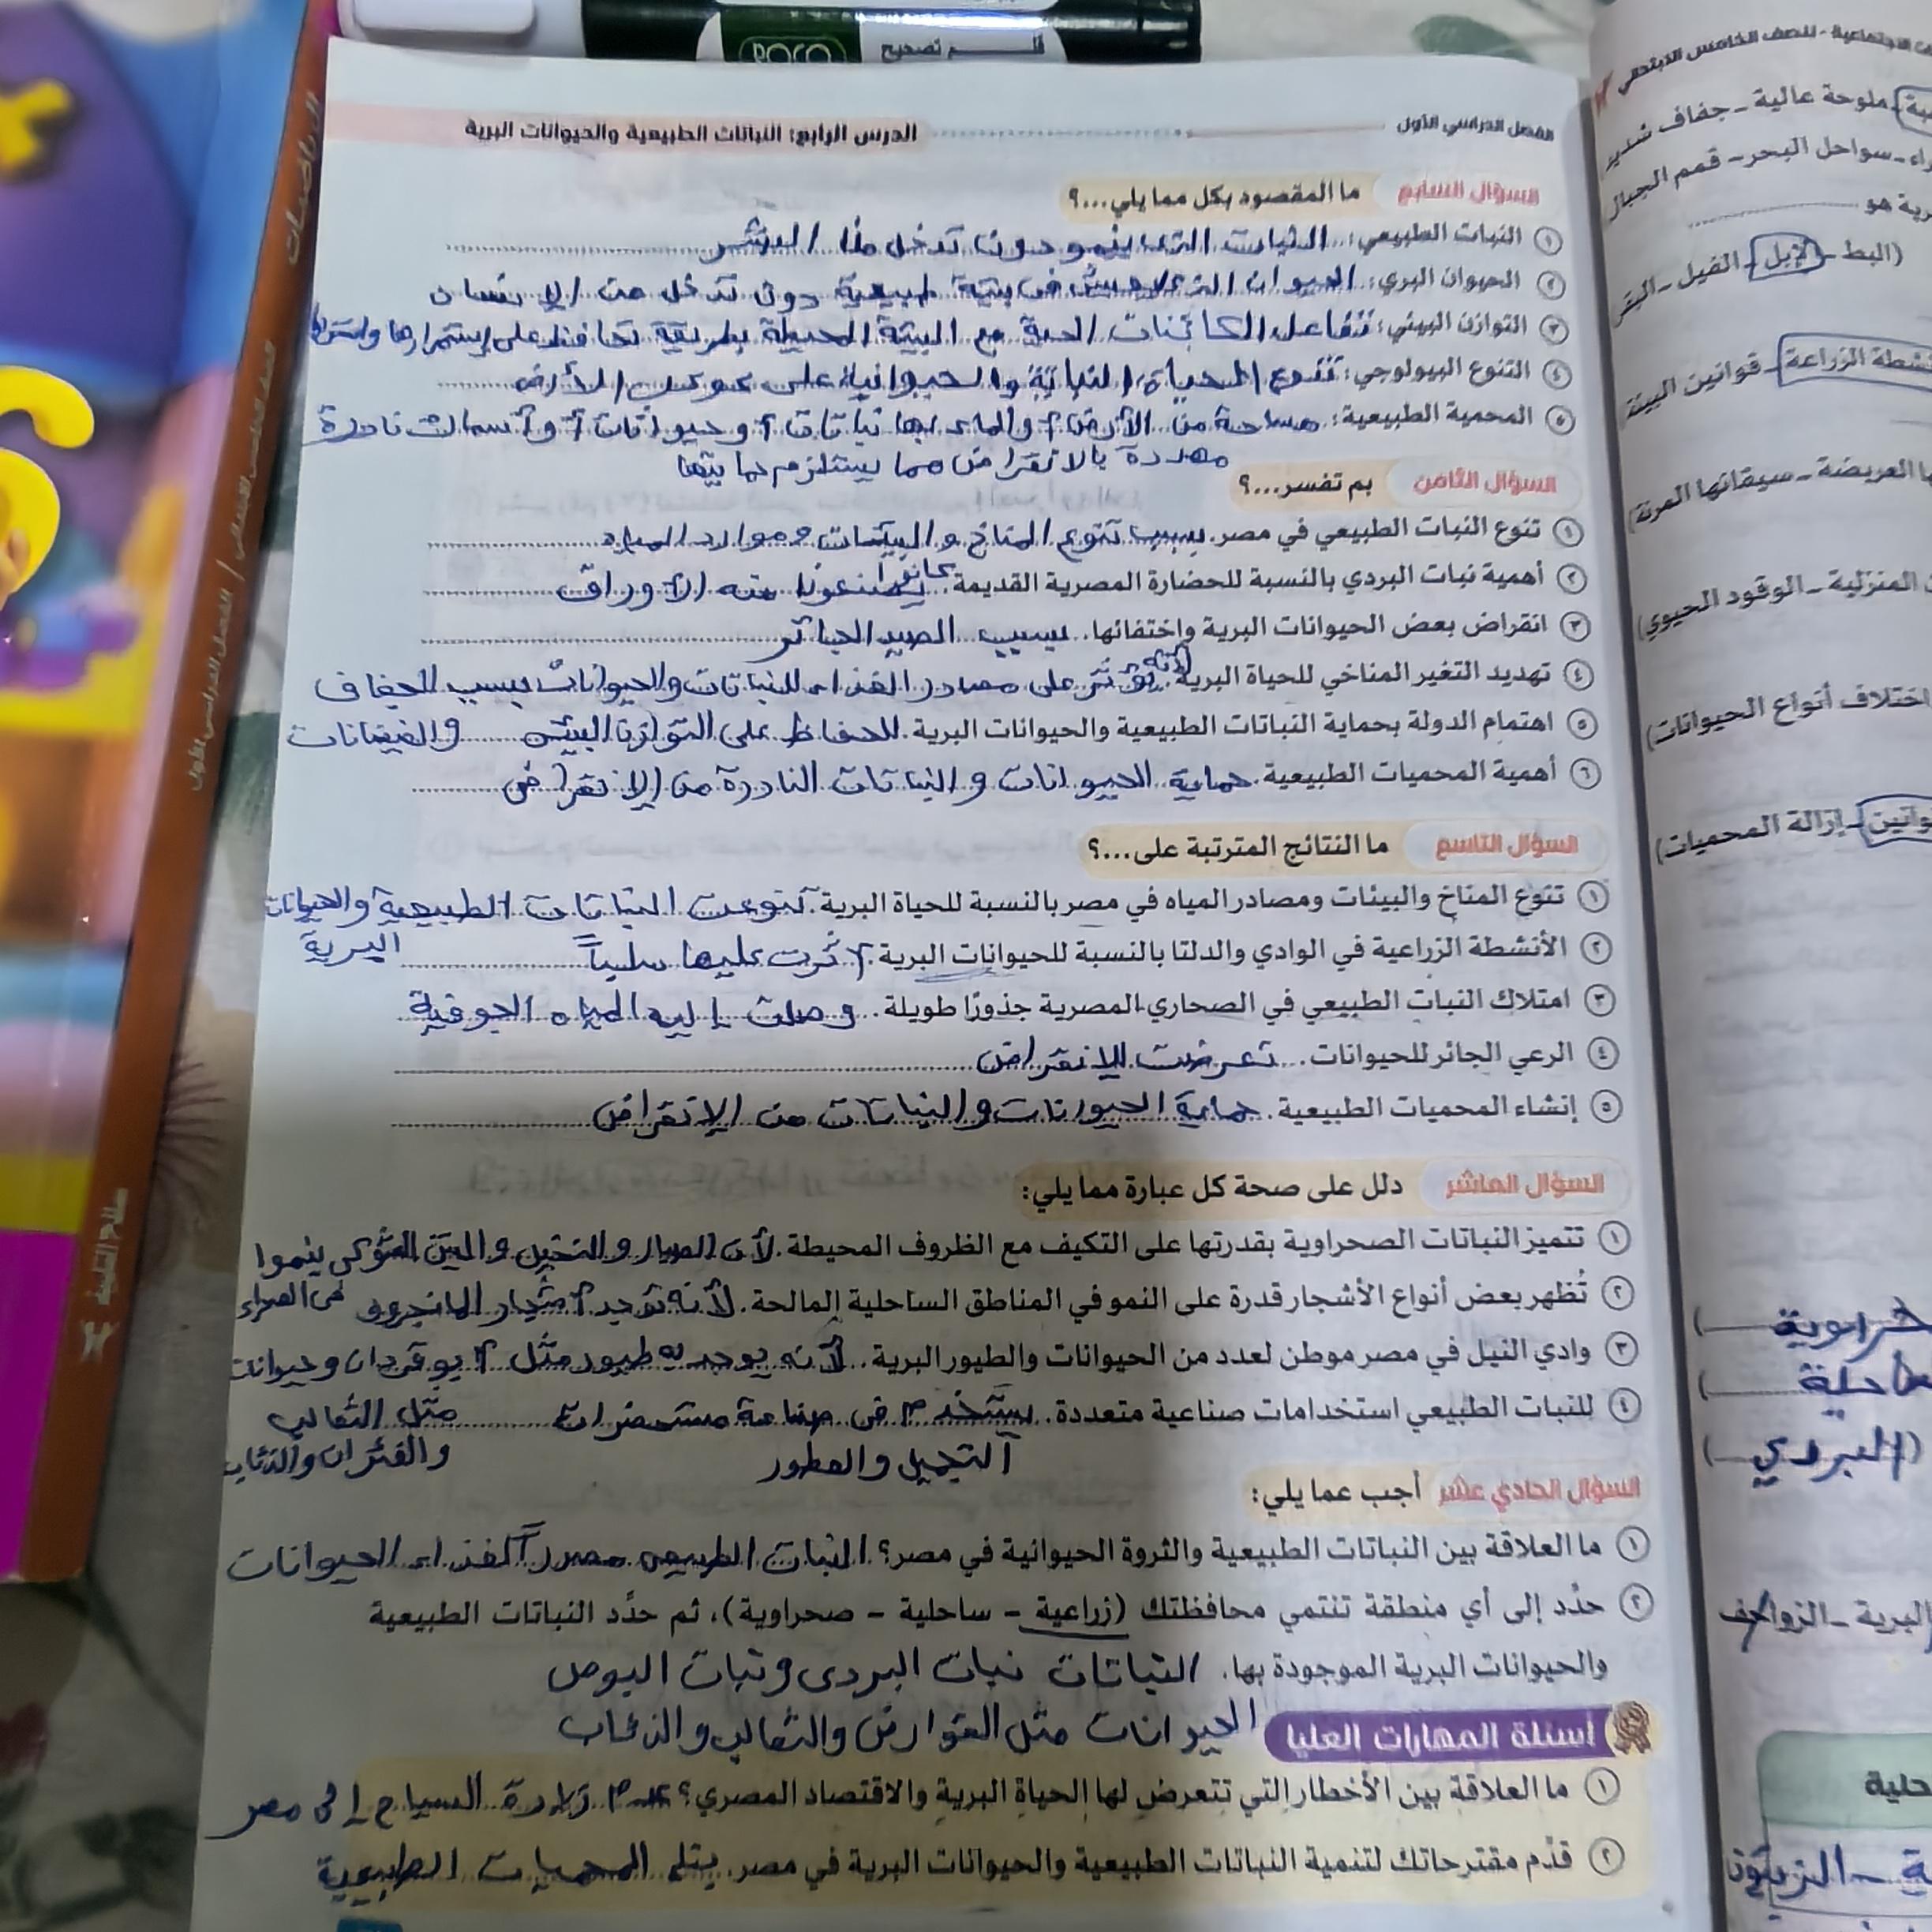 قلم تصحيح
الفصل الدراسي الأول
الدرس الرابع: النباتات الطبيعية والحيوانات البرية
السؤال السابع ما المقصود بكل مما يلي...؟
١ النبات الطبيعي: النبات الذى ينمو دون تدخل من البشر
٢ الحيوان البري: الحيوان الذى يعيش فى بيئة طبيعية دون تدخل من الإنسان
٣ التوازن البيئي: تتفاعل الكائنات الحية مع البيئة المحيطة بطريقة تحافظ على إستمرارها
٤ التنوع البيولوجي: تنوع الحياة النباتية والحيوانية على كوكب الأرض
٥ المحمية الطبيعية: مساحة من الأرض أو الماء بها نباتات أو حيوانات أو أسماك نادرة
مهددة بالانقراض مما يستلزم حمايتها
السؤال الثامن بم تفسر...؟
١ تنوع النبات الطبيعي في مصر. بسبب تنوع المناخ والبيئات وموارد المياه
٢ أهمية نبات البردي بالنسبة للحضارة المصرية القديمة. كانوا يصنعون منه الأوراق
٣ انقراض بعض الحيوانات البرية واختفائها. بسبب الصيد الجائر
٤ تهديد التغير المناخي للحياة البرية. لأنه يؤثر على مصادر الغذاء للنباتات والحيوانات بسبب الجفاف
٥ اهتمام الدولة بحماية النباتات الطبيعية والحيوانات البرية. للحفاظ على التوازن البيئى والفيضانات
٦ أهمية المحميات الطبيعية. حماية الحيوانات والنباتات النادرة من الإنقراض
السؤال التاسع ما النتائج المترتبة على...؟
١ تنوع المناخ والبيئات ومصادر المياه في مصر بالنسبة للحياة البرية. تنوعت النباتات الطبيعية والحيوانات
البرية
٢ الأنشطة الزراعية في الوادي والدلتا بالنسبة للحيوانات البرية. أثرت عليها سلبياً
٣ امتلاك النبات الطبيعي في الصحاري المصرية جذورًا طويلة. وصلت إليه المياه الجوفية
٤ الرعي الجائر للحيوانات. تعرضت للإنقراض
٥ إنشاء المحميات الطبيعية. حماية الحيوانات والنباتات من الإنقراض
السؤال العاشر دلل على صحة كل عبارة مما يلي:
١ تتميز النباتات الصحراوية بقدرتها على التكيف مع الظروف المحيطة. لأن الصبار والنخيل والتين الشوكى ينموا
فى الصحراء
٢ تُظهر بعض أنواع الأشجار قدرة على النمو في المناطق الساحلية المالحة. لأنه توجد أشجار المانجروف
٣ وادي النيل في مصر موطن لعدد من الحيوانات والطيور البرية. لأنه يوجد به طيور مثل أبو قردان وحيوانات
مثل الثعالب
والفئران والذئاب
٤ للنبات الطبيعي استخدامات صناعية متعددة. يستخدم فى صناعة مستحضرات
التجميل والعطور
السؤال الحادي عشر أجب عما يلي:
١ ما العلاقة بين النباتات الطبيعية والثروة الحيوانية في مصر؟ النبات الطبيعى مصدر لغذاء الحيوانات
٢ حدِّد إلى أي منطقة تنتمي محافظتك (زراعية – ساحلية – صحراوية)، ثم حدِّد النباتات الطبيعية
والحيوانات البرية الموجودة بها. النباتات نبات البردى ونبات البوص
الحيوانات مثل القوارض والثعالب والذئاب
أسئلة المهارات العليا
١ ما العلاقة بين الأخطار التي تتعرض لها الحياة البرية والاقتصاد المصري؟ عدم زيارة السياح إلى مصر
٢ قدِّم مقترحاتك لتنمية النباتات الطبيعية والحيوانات البرية في مصر. المحميات الطبيعية
للصف الخامس الابتدائي
ملوحة عالية – جفاف شديد
سواحل البحر – قمم الجبال
(البط – الإبل – الفيل – البقر
الزراعة – قوانين البيئة
العريضة – سيقانها المرنة)
المنزلية – الوقود الحيوي)
اختلاف أنواع الحيوانات)
إزالة المحميات)
(البردي)
البرية – الزواحف
الزيتون
الرياضيات
الفصل الدراسي الأول
سلاح التلميذ